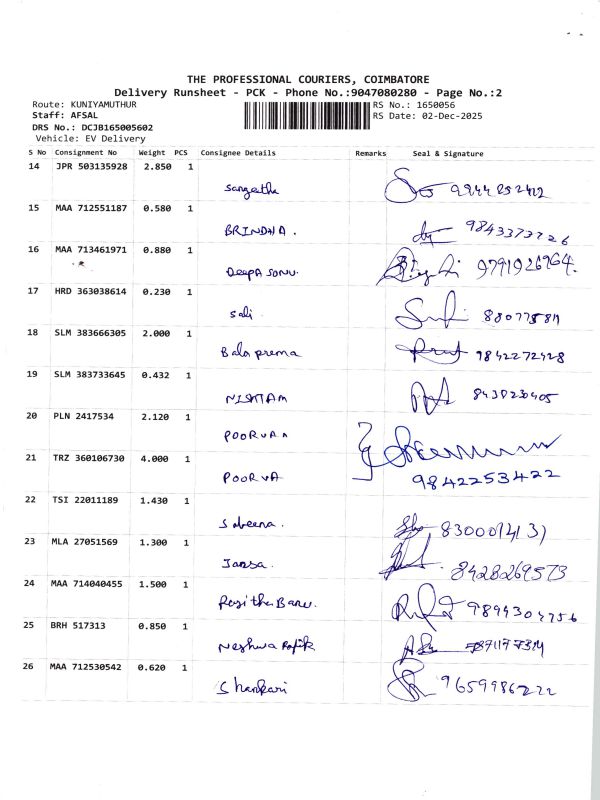 THE PROFESSIONAL COURIERS, COIMBATORE
Delivery Runsheet - PCK - Phone No.:9047080280 - Page No.:2
Route: KUNIYAMUTHUR RS No.: 1650056
Staff: AFSAL RS Date: 02-Dec-2025
DRS No.: DCJB165005602
Vehicle: EV Delivery
S No Consignment No Weight PCS Consignee Details Remarks Seal & Signature
14 JPR 503135928 2.850 1
Sangeetha 9244252412
15 MAA 712551187 0.580 1
BRINDHA. 9843373726
16 MAA 713461971 0.880 1
DEEPA SONU. 9791926964.
17 HRD 363038614 0.230 1
Sali
18 SLM 383666305 2.000 1
Bala prema 9842272428
19 SLM 383733645 0.432 1
8430230405
20 PLN 2417534 2.120 1
POORVAA
21 TRZ 360106730 4.000 1
POORVA 9842253422
22 TSI 22011189 1.430 1
Sabeena.
23 MLA 27051569 1.300 1
Jansa. 8428269573
24 MAA 714040455 1.500 1
Rasitha Banu. 9894304756
25 BRH 517313 0.850 1
Neshwa Rafik
26 MAA 712530542 0.620 1
Shankari 9659986222